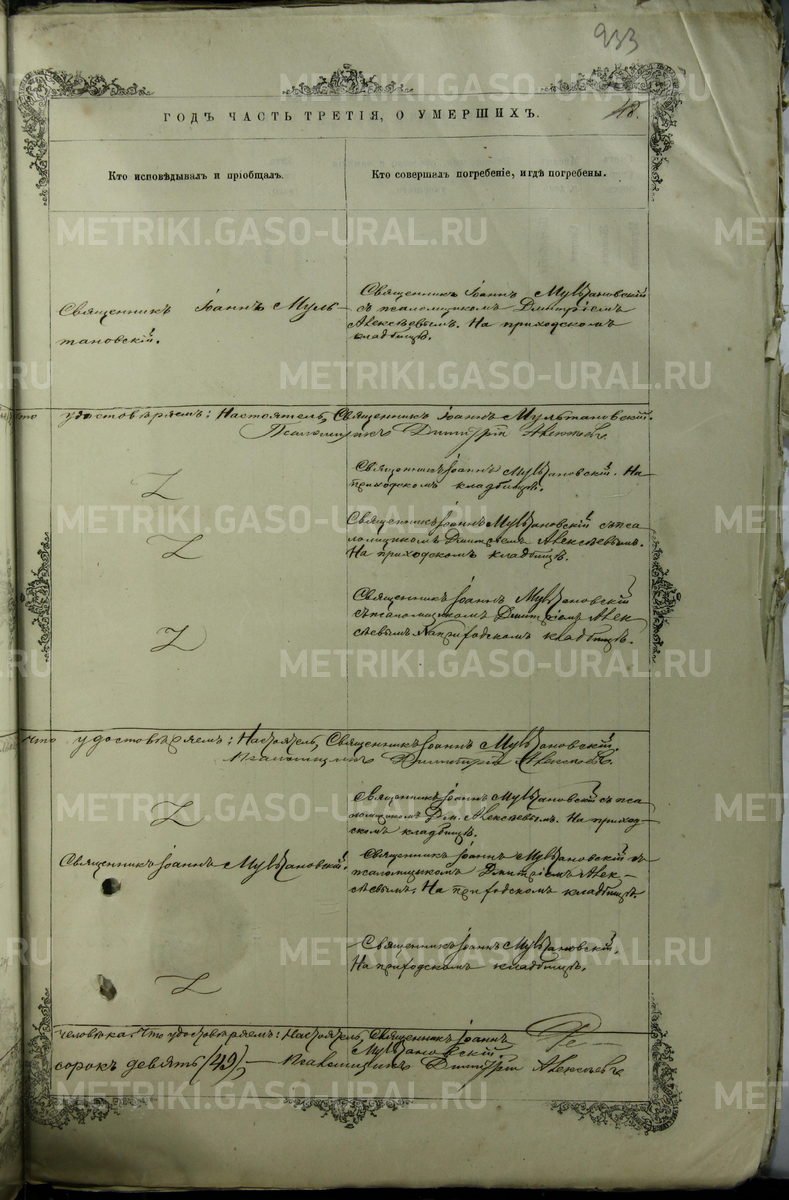 933
48.
ГОДЪ ЧАСТЬ ТРЕТІЯ, О УМЕРШИХЪ.
Кто исповѣдывалъ и пріобщалъ.
Кто совершалъ погребеніе, и гдѣ погребены.
Священникъ Іоаннъ Муль-
тановскій.
Священникъ Іоаннъ Мультановскій
съ псаломщикомъ Дмитріемъ
Алексѣевымъ. На приходскомъ
кладбищѣ.
что удостовѣряемъ: Настоятель, Священникъ Іоаннъ Мультановскій.
Псаломщикъ Димитрій Алексѣевъ
Священникъ Іоаннъ Мультановскій. На
приходскомъ кладбищѣ.
Священникъ Іоаннъ Мультановскій съ пса-
ломщикомъ Дмитріемъ Алексѣевымъ.
На приходскомъ кладбищѣ.
Священникъ Іоаннъ Мультановскій
съ псаломщикомъ Дмитріемъ Алек-
сѣевымъ. На приходскомъ кладбищѣ.
что удостовѣряемъ: Настоятель, Священникъ Іоаннъ Мультановскій.
Псаломщикъ Димитрій Алексѣевъ
Священникъ Іоаннъ Мультановскій съ пса-
ломщикомъ Дм. Алексѣевымъ. На приход-
скомъ кладбищѣ.
Священникъ Іоаннъ Мультановскій.
Священникъ Іоаннъ Мультановскій съ
псаломщикомъ Дмитріемъ Алек-
сѣевымъ. На приходскомъ кладбищѣ.
Священникъ Іоаннъ Мультановскій.
На приходскомъ кладбищѣ.
человѣка. Что удостовѣряемъ: Настоятель, Священникъ Іоаннъ
Мультановскій
сорокъ девять (49), — Псаломщикъ Димитрій Алексѣевъ
METRIKI.GASO-URAL.RU